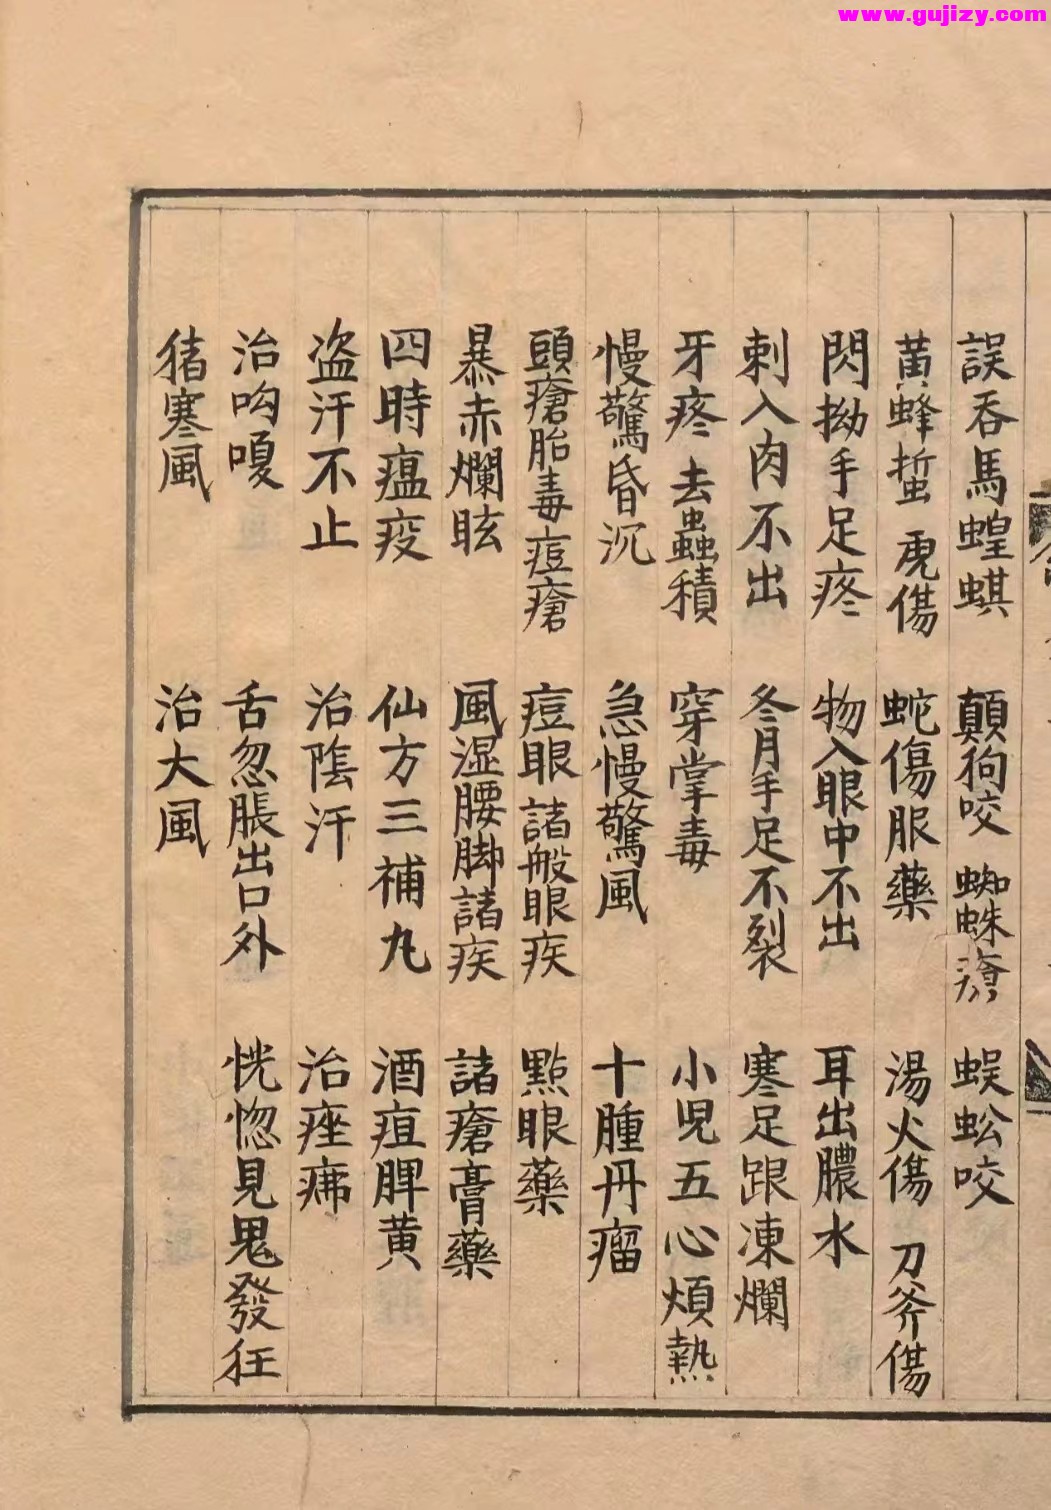 www.gujizy.com
誤吞馬蝗蜞 顛狗咬 蜘蛛瘡 蜈蚣咬
黃蜂蜇 虎傷 蛇傷服藥 湯火傷 刀斧傷
閃拗手足疼 物入眼中不出 耳出膿水
刺入肉不出 冬月手足不裂 寒足跟凍爛
牙疼 去蟲積 穿掌毒 小児五心煩熱
慢驚昏沉 急慢驚風 十腫丹瘤
頭瘡胎毒痘瘡 痘眼 諸般眼疾 點眼藥
暴赤爛眩 風湿腰脚諸疾 諸瘡膏藥
四時瘟疫 仙方三補丸 酒疸脾黄
盗汗不止 治陰汗 治痤疿
治呴嗄 舌忽脹出口外 恍惚見鬼發狂
猪寒風 治大風